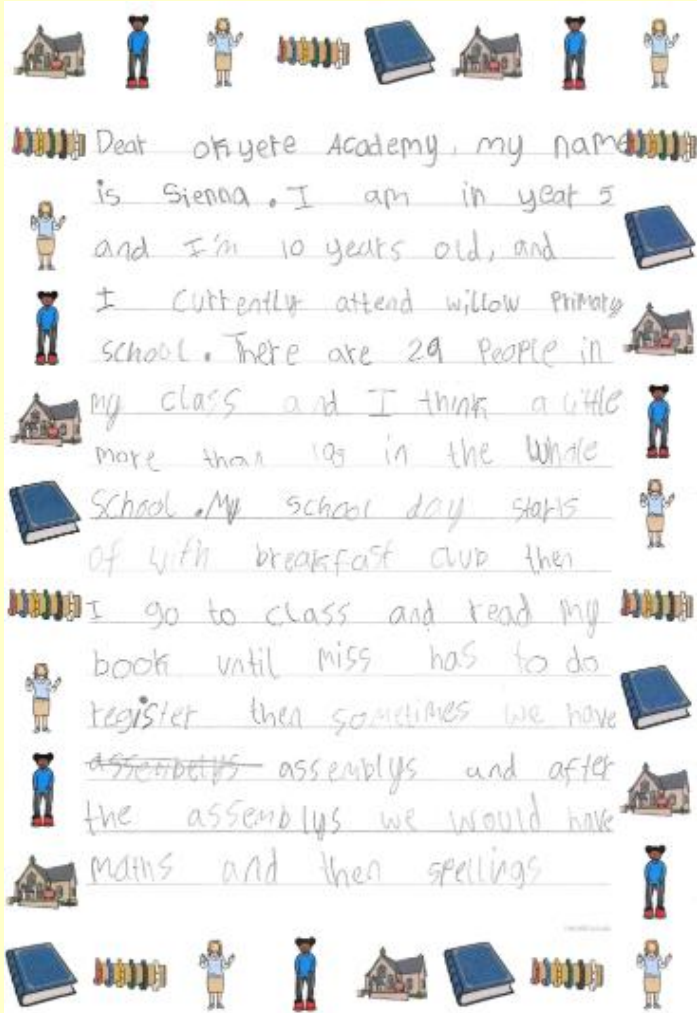 Dear okyere Academy, my name
is Sienna. I am in year 5
and I'm 10 years old, and
I currently attend willow Primary
school. There are 29 People in
my class and I think a little
more than in the whole
School. My school day starts
of with breakfast club then
I go to class and read my
book until miss has to do
register then sometimes we have
assemblys and after
the assemblys we would have
maths and then spellings